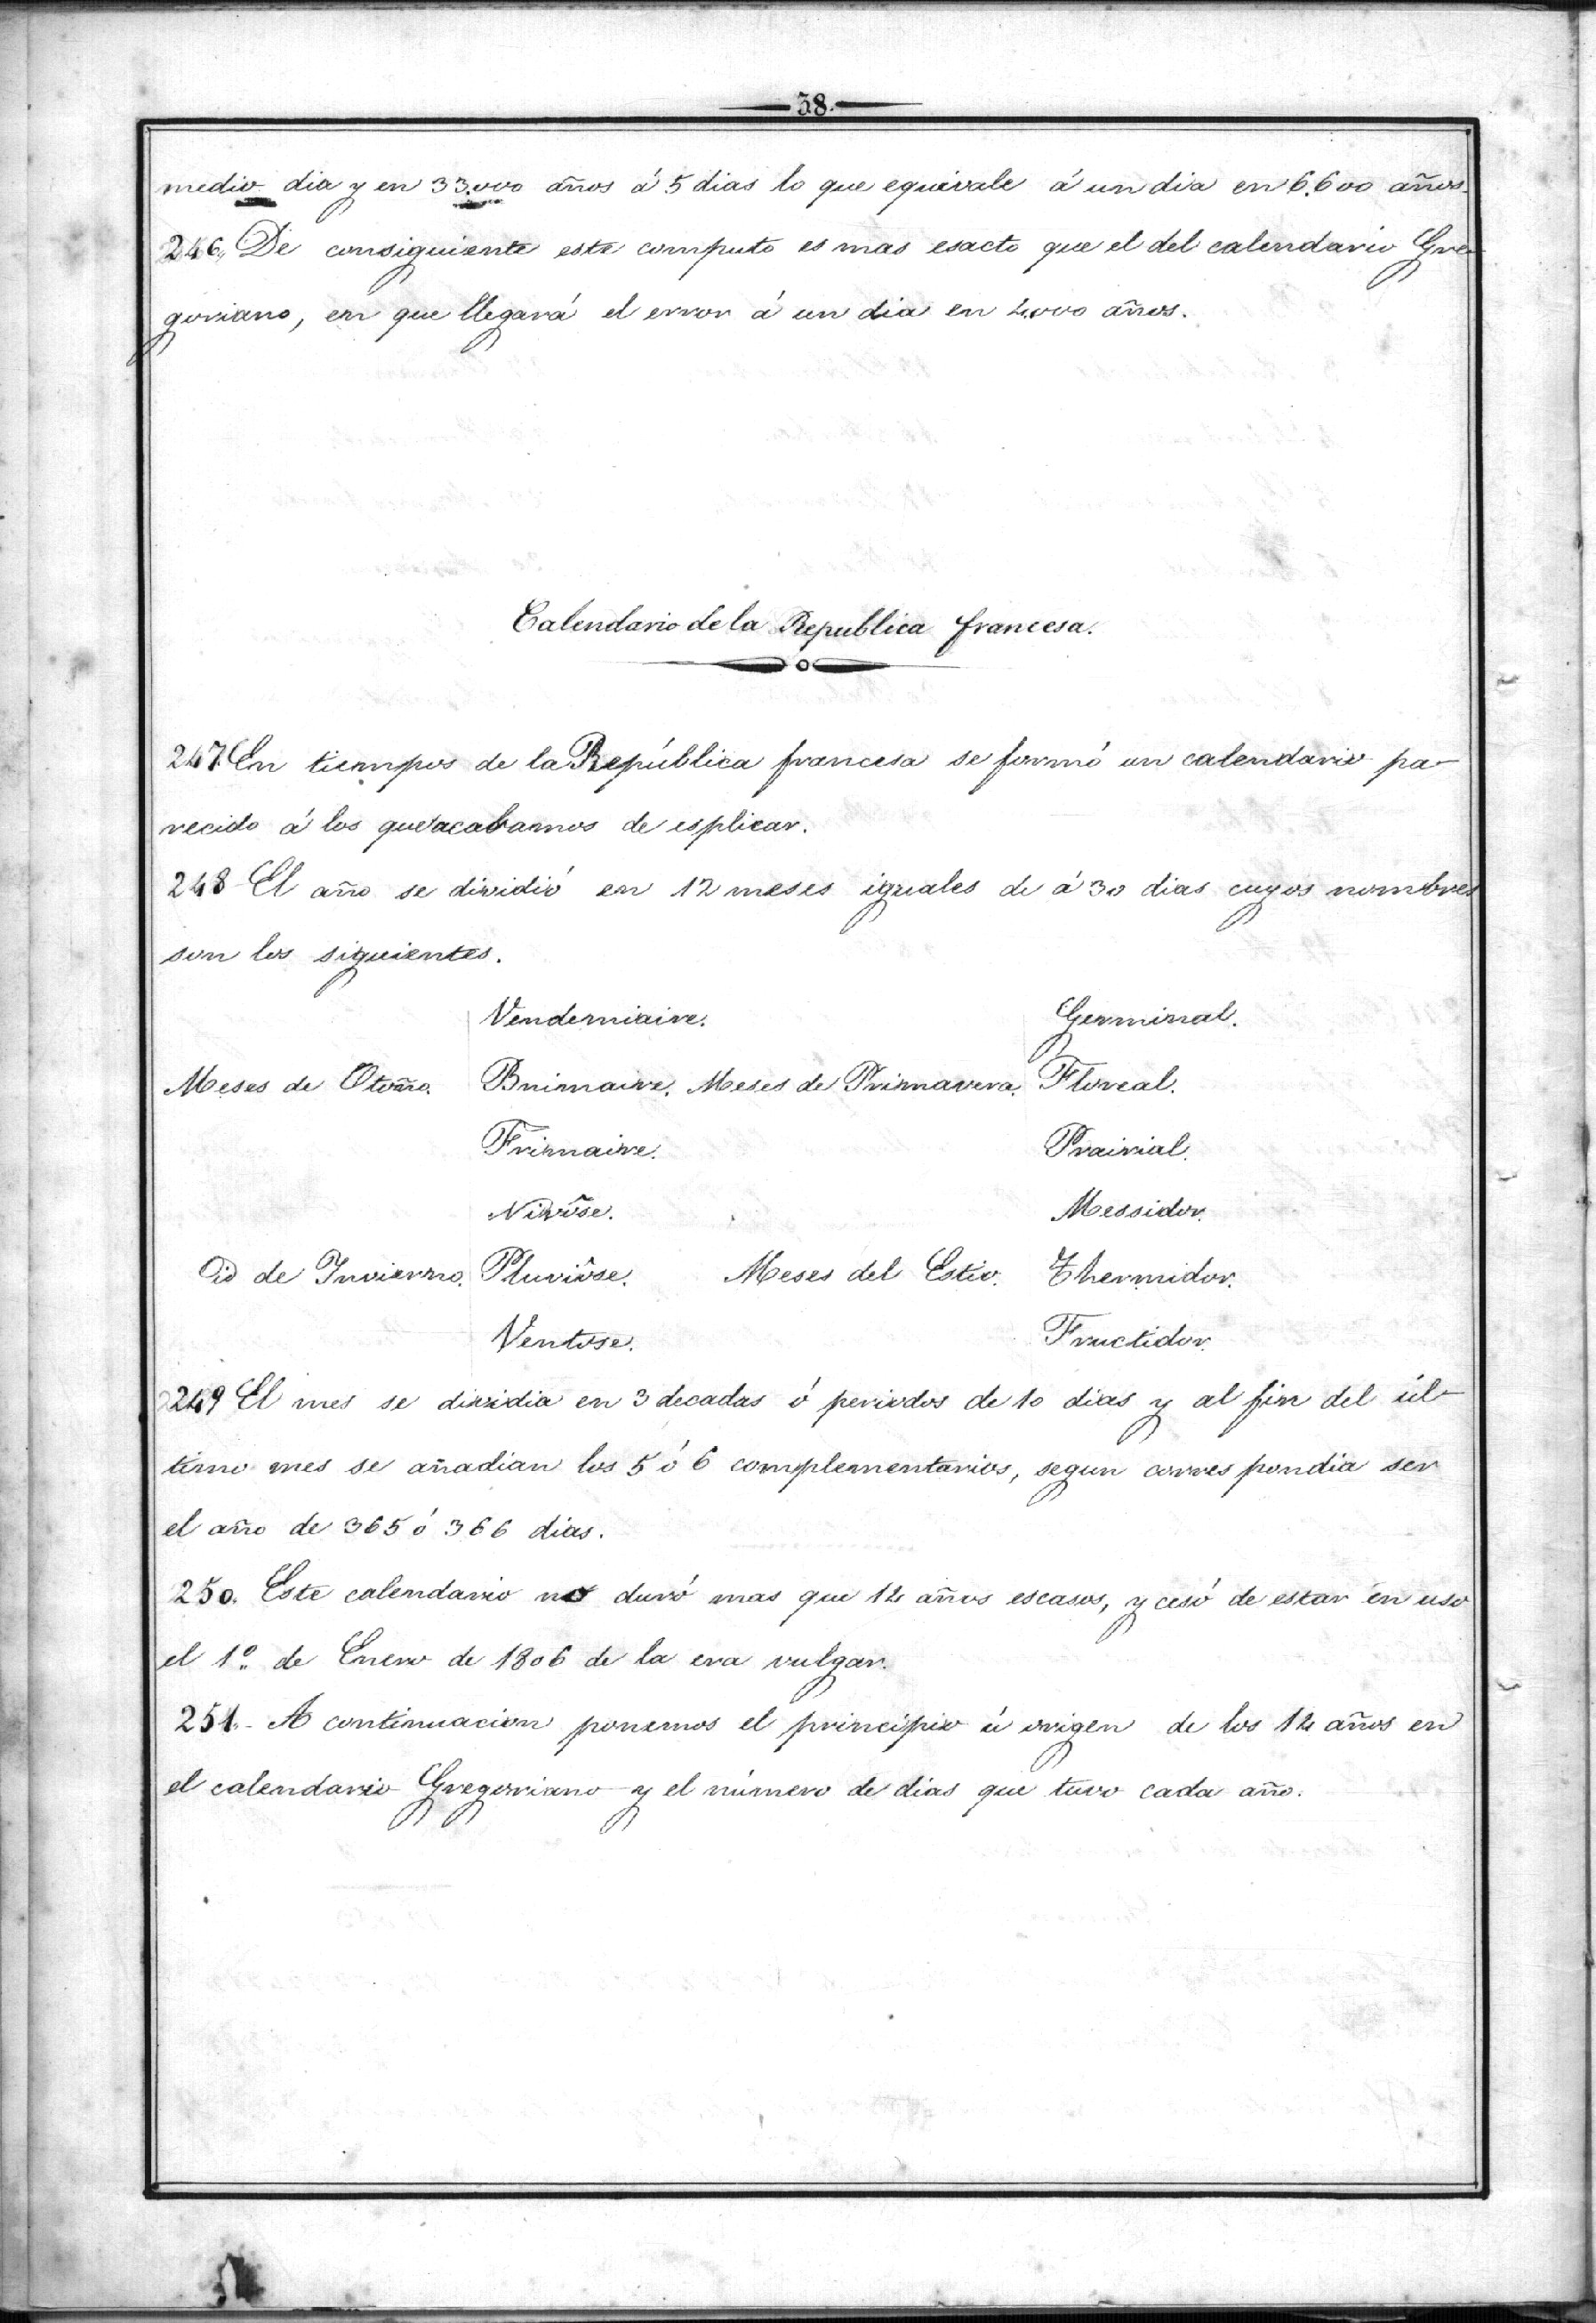 38.
medio dia y en 33.000 años á 5 dias lo que equivale á un dia en 6.600 años.
246,, De consiguiente este computo es mas esacto que el del calendario Gre-
goriano, en que llegará el error á un dia en 4.000 años.
Calendario de la Republica francesa.
247. En tiempos de la República francesa se formó un calendario pa-
recido á los que acabamos de esplicar.
248 El año se dividió en 12 meses iguales de á 30 dias cuyos nombres
son los siguientes.
Vendemiaire. Germinal.
Meses de Otoño. Brimaire. Meses de Primavera. Floreal.
Frimaire. Prairial.
Nivôse. Messidor.
Id de Invierno. Pluviôse. Meses del Estio. Thermidor.
Ventose. Fructidor.
249 El mes se dividia en 3 decadas ó periodos de 10 dias y al fin del úl-
timo mes se añadian los 5 ó 6 complementarios, segun correspondia ser
el año de 365 ó 366 dias.
250. Este calendario no duró mas que 14 años escasos, y cesó de estar en uso
el 1º de Enero de 1806 de la era vulgar.
251.- A continuacion ponemos el principio ú origen de los 14 años en
el calendario Gregoriano y el número de dias que tuvo cada año.